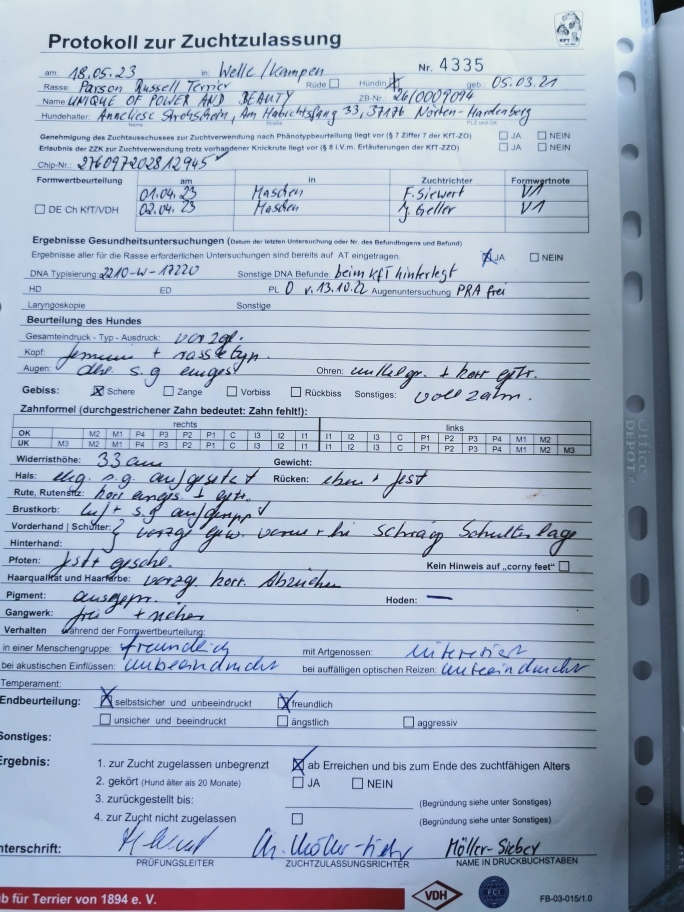 Protokoll zur Zuchtzulassung
KFT
am: 18.05.23 in: Welle/Kampen Nr. 4335
Rasse: Parson Russell Terrier Rüde Hündin geb.: 05.03.21
Name: UNIQUE OF POWER AND BEAUTY ZB-Nr. 26/0009094
Hundehalter: Anneliese Strohschein, Am Habichtsfang 33, 37176 Nörten-Hardenberg
Genehmigung des Zuchtausschusses zur Zuchtverwendung nach Phänotypbeurteilung liegt vor (§ 7 Ziffer 7 der KfT-ZO) JA NEIN
Erlaubnis der ZZK zur Zuchtverwendung trotz vorhandener Knickrute liegt vor (§ 8 i.V.m. Erläuterungen der KfT-ZZO) JA NEIN
Chip-Nr.: 276097202812945
Formwertbeurteilung am in Zuchtrichter Formwertnote
01.04.23 Maschen F. Siewert V1
DE Ch KfT/VDH 02.04.23 Maschen J. Geller V1
Ergebnisse Gesundheitsuntersuchungen (Datum der letzten Untersuchung oder Nr. des Befundbogens und Befund)
Ergebnisse aller für die Rasse erforderlichen Untersuchungen sind bereits auf AT eingetragen. JA NEIN
DNA Typisierung: 2210-W-17220 Sonstige DNA Befunde: beim KfT hinterlegt
HD ED PL 0 v. 13.10.22 Augenuntersuchung PRA frei
Laryngoskopie Sonstige
Beurteilung des Hundes
Gesamteindruck - Typ - Ausdruck: vorzgl.
Kopf: femin + rassetyp.
Augen: s.g einges Ohren: mittelgr. + korr getr.
Gebiss: Schere Zange Vorbiss Rückbiss Sonstiges: vollzahn.
Zahnformel (durchgestrichener Zahn bedeutet: Zahn fehlt!):
rechts links
OK M2 M1 P4 P3 P2 P1 C I3 I2 I1 I1 I2 I3 C P1 P2 P3 P4 M1 M2
UK M3 M2 M1 P4 P3 P2 P1 C I3 I2 I1 I1 I2 I3 C P1 P2 P3 P4 M1 M2 M3
Widerristhöhe: 33 cm Gewicht:
Hals: s.g. aufgesetzt Rücken: eben + fest
Rute, Rutensitz: korr anges + getr.
Brustkorb: s.g
Vorderhand | Schulter: } vorzgl gew. vorne + hi schräg Schulterlage
Hinterhand:
Pfoten: fest + geschl. Kein Hinweis auf „corny feet“
Haarqualität und Haarfarbe: vorzgl korr. Abzeichen
Pigment: ausgepr. Hoden: —
Gangwerk: frei + sicher
Verhalten während der Formwertbeurteilung:
in einer Menschengruppe: freundlich mit Artgenossen: interessiert
bei akustischen Einflüssen: unbeeindruckt bei auffälligen optischen Reizen: unbeeindruckt
Temperament:
Endbeurteilung: selbstsicher und unbeeindruckt freundlich
unsicher und beeindruckt ängstlich aggressiv
Sonstiges:
Ergebnis: 1. zur Zucht zugelassen unbegrenzt ab Erreichen und bis zum Ende des zuchtfähigen Alters
2. gekört (Hund älter als 20 Monate) JA NEIN
3. zurückgestellt bis: (Begründung siehe unter Sonstiges)
4. zur Zucht nicht zugelassen (Begründung siehe unter Sonstiges)
nterschrift: Ch. Möller-Sieber Möller-Sieber
PRÜFUNGSLEITER ZUCHTZULASSUNGSRICHTER NAME IN DRUCKBUCHSTABEN
b für Terrier von 1894 e. V. VDH FCI FB-03-015/1.0
Office DEPOT